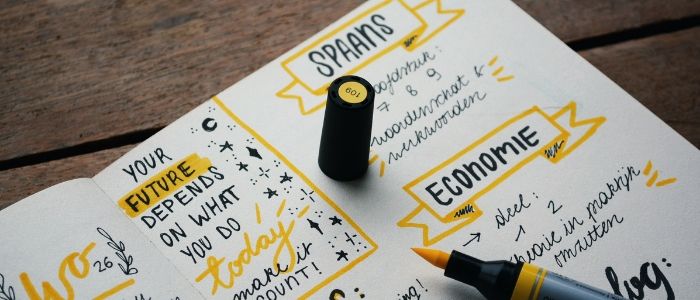 wo
26
YOUR
FUTURE
DEPENDS
ON WHAT
YOU DO
today
make it
COUNT!
SPAANS
hoofdstuk:
7 8 9
woordenschat &
werkwoorden
109
ECONOMIE
→ deel:
1 2
theorie in praktijk
omzetten